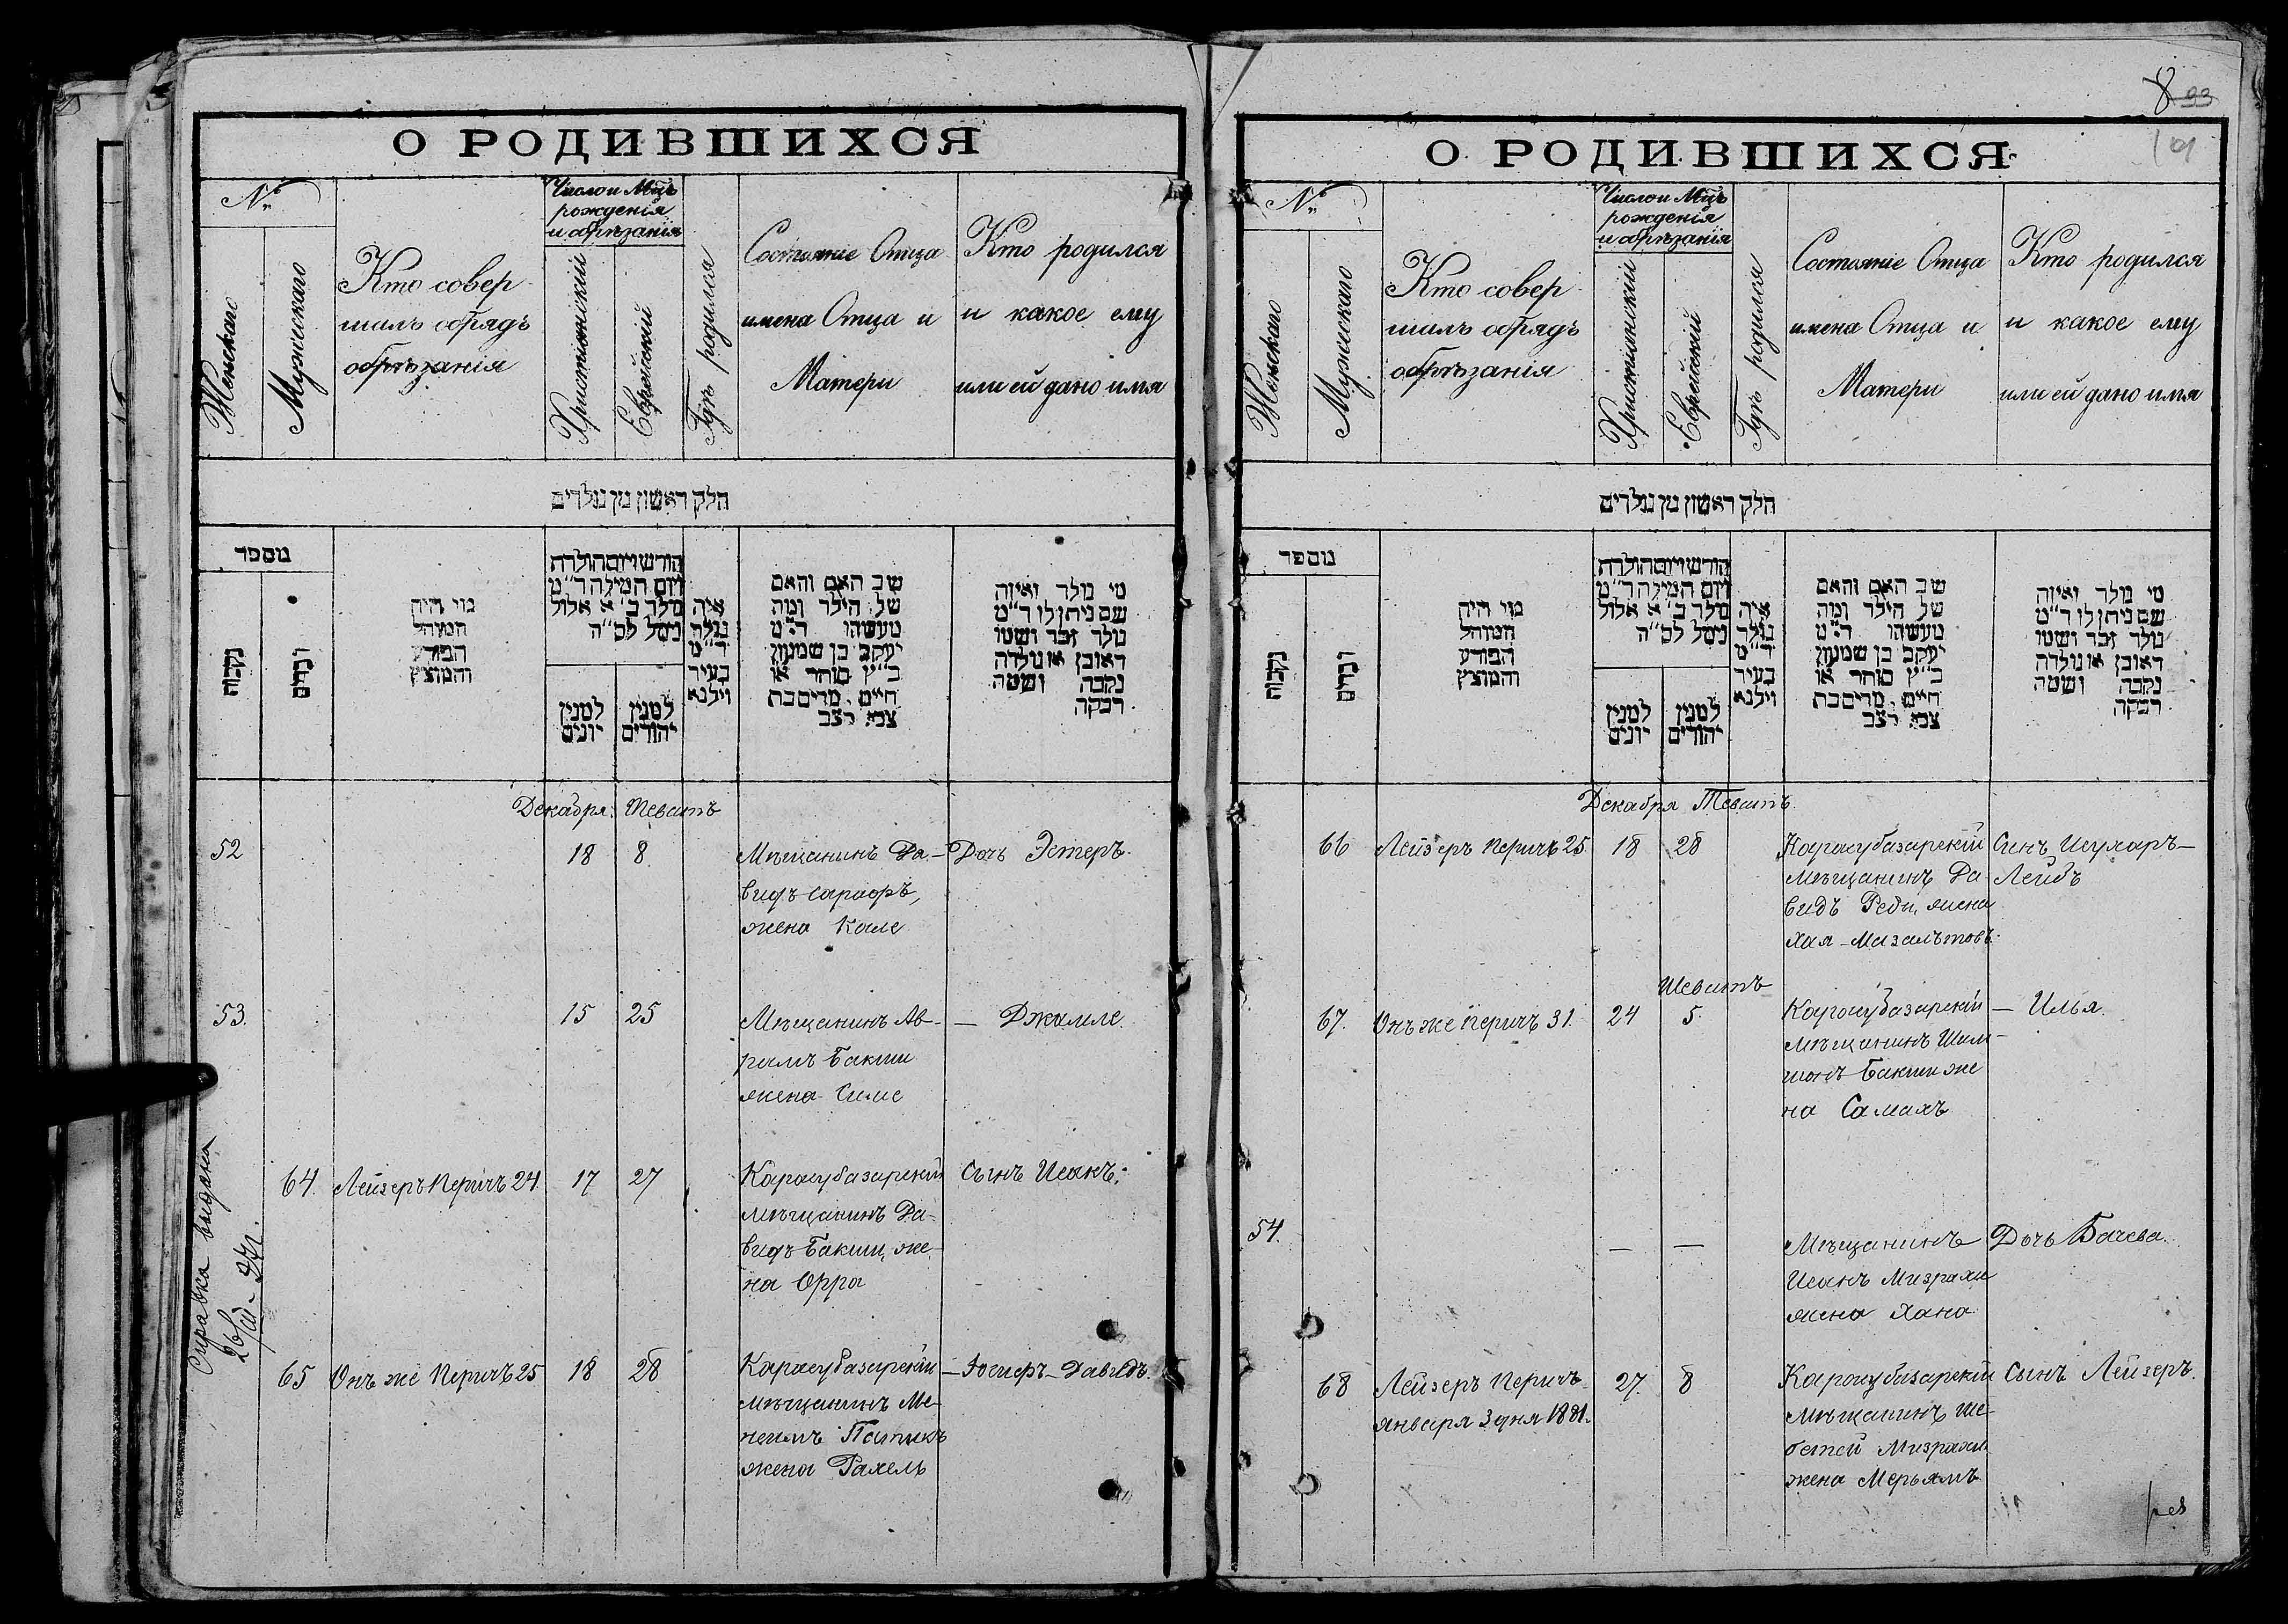 О РОДИВШИХСЯ
№
Женскаго
Мужескаго
Кто совер
шалъ обрядъ
обрѣзанія
Число и Мцъ
рожденія
и обрѣзанія
Христіянскій
Еврейскій
Гдѣ родился
Состояніе Отца
имена Отца и
Матери
Кто родился
и какое ему
или ей дано имя
חלק ראשון מן נולדים
מספר
נקבות
זכרים
מי היה
המוהל
הפורע
והמוצץ
חודש ויום הולדת
ויום המילה ד״מ
נולד ב׳ א אלול
נימל לס״ה
למנין
יונים
למנין
יהודים
איה
נולד
ד״מ
בעיר
וילנא
שב האם והאם
של הילד ומה
מעשהו ד״מ
יעקב בן שמעון
כ״ץ סוחר או
חייט, מרים בת
צבא רצב
מי נולד ואיזה
שם ניתן לו ד״מ
נולד זכר ושמו
ראובן או נולדה
נקבה ושמה
רבקה
Декабря. Теватъ
52
18
8
Мѣщанинъ Да-
видъ Сарафъ,
жена Кале
Дочь Эстеръ.
53.
15
25
Мѣщанинъ Ав-
рамъ Бакши
жена Симе
— Джамиле.
64.
Лейзеръ Перичъ 24
17
27
Карасубазарскій
мѣщанинъ Да-
видъ Бакши, же-
на Орра
Сынъ Исакъ.
65
Онъ же Перичъ 25
18
28
Карасубазарскій
мѣщанинъ Ме-
Жена Рахель
— Юсифъ-Давидъ.
Справка выдана
8 93
О РОДИВШИХСЯ
№
Женскаго
Мужескаго
Кто совер
шалъ обрядъ
обрѣзанія
Число и Мцъ
рожденія
и обрѣзанія
Христіянскій
Еврейскій
Гдѣ родился
Состояніе Отца
имена Отца и
Матери
Кто родился
и какое ему
или ей дано имя
חלק ראשון מן נולדים
מספר
נקבות
זכרים
מי היה
המוהל
הפורע
והמוצץ
חודש ויום הולדת
ויום המילה ד״מ
נולד ב׳ א אלול
נימל לס״ה
למנין
יונים
למנין
יהודים
איה
נולד
ד״מ
בעיר
וילנא
שב האם והאם
של הילד ומה
מעשהו ד״מ
יעקב בן שמעון
כ״ץ סוחר או
חייט, מרים בת
צבא רצב
מי נולד ואיזה
שם ניתן לו ד״מ
נולד זכר ושמו
ראובן או נולדה
נקבה ושמה
רבקה
Декабря Теватъ.
66
Лейзеръ Перичъ 25
18
28
Карасубазарскій
мѣщанинъ Да-
видъ Реби, жена
Хая-Мазалътовъ.
Сынъ Исухаръ-
Лейбъ
Шеватъ
67.
Онъ же Перичъ 31.
24
5
Карасубазарскій
мѣщанинъ Шам-
шонъ Бакши же
на Самахъ
— Илья.
54.
—
—
Мѣщанинъ
Исакъ Мизрахи
жена Хана
Дочь Бачева.
68
Лейзеръ Перичъ
января 3 дня 1881.
27.
8
Карасубазарскій
мѣщанинъ Ше-
бетей Мизрахи
жена Мерьямъ
Сынъ Лейзеръ.